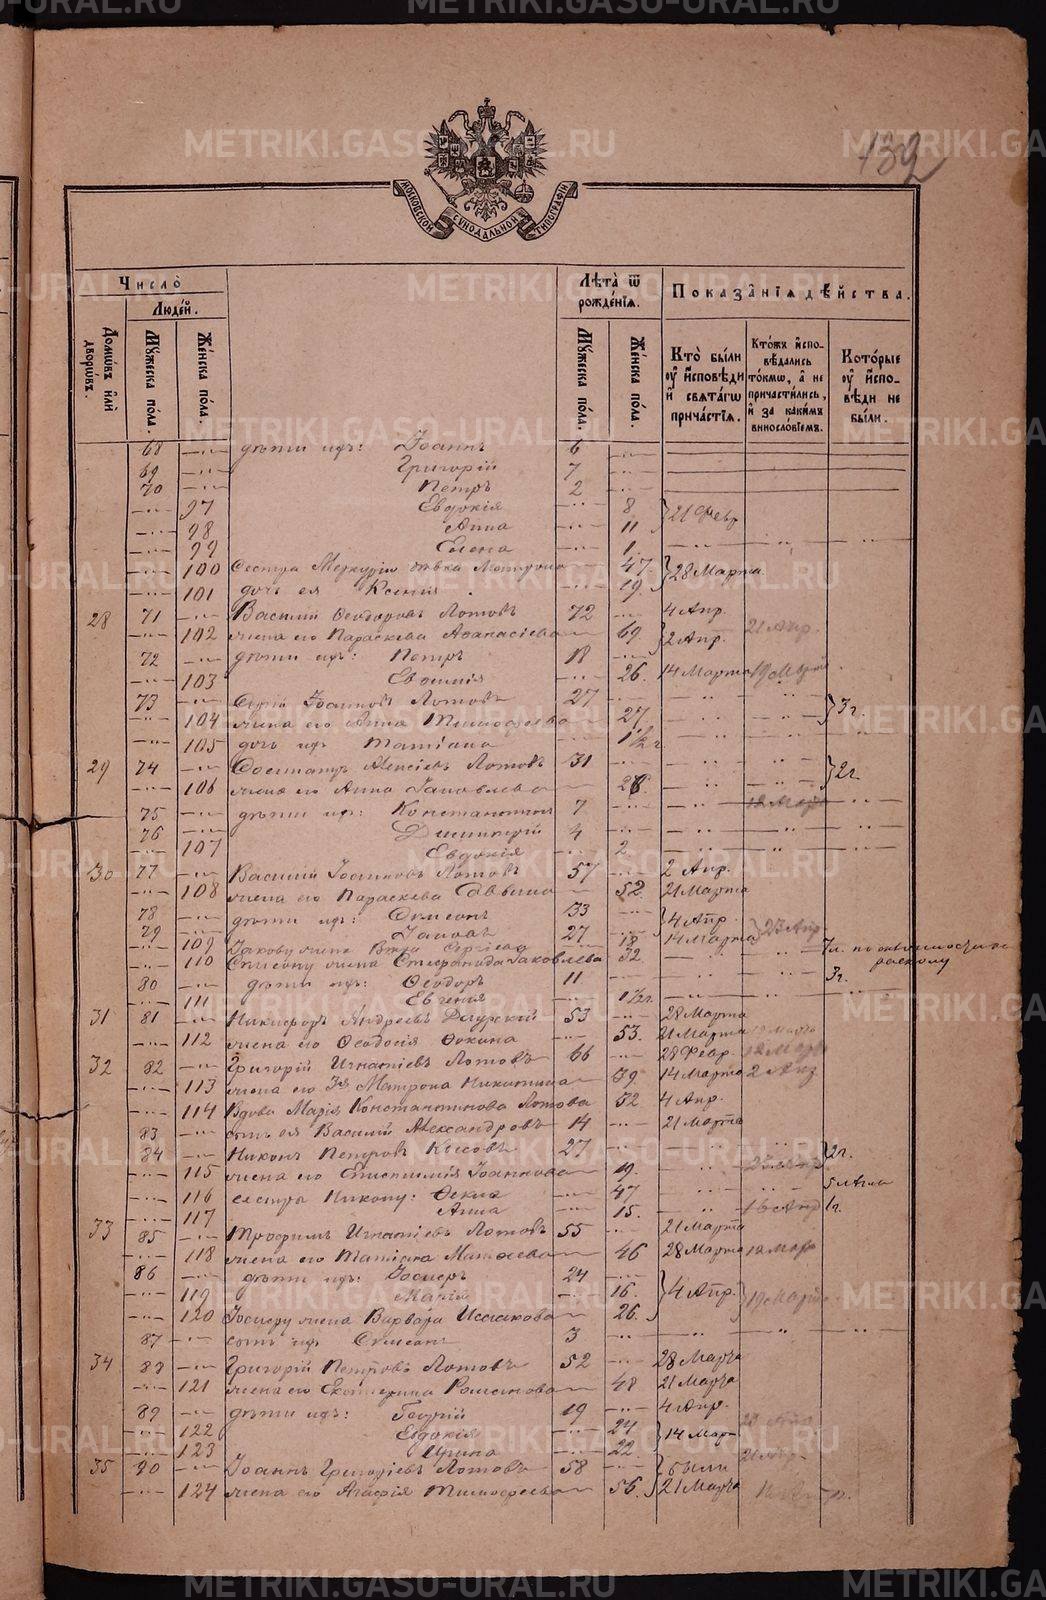 132
МОСКОВСКОЙ СѴНОДАЛЬНОЙ ТИПОГРАФІИ
Число̀
Людéй.
Домѡ́въ и҆лѝ дворѡ́въ.
Мꙋ́жеска пóла.
Жéнска пóла.
Лѣ́та ѿ рождéнїѧ.
Мꙋ́жеска пóла.
Жéнска пóла.
Показáнїѧ дѣ́йства.
Кто̀ бы́ли ᲂу҆ и҆́сповѣди и҆ свѧта́гѡ причáстїѧ.
Кто́жъ и҆спо- вѣ́дались то́кмѡ, а҆ не причасти́лись, и҆ за каки́мъ винослóвїемъ.
Котóрые ᲂу҆ и҆́спо- вѣди не бы́ли.
68 —"— дѣти ихъ: Іоаннъ 6 —"—
69 —"— Григорій 7 —"—
70 —"— Петръ 2 —"—
—"— 97 Евдокія —"— 8 21 Февр
—"— 98 Анна —"— 11
—"— 99 Елена —"— 1
—"— 100 Сестра Меркурію дѣвка Матрона 47 28 Марта
—"— 101 дочь ея Ксенія 19
28 71 —"— Василій Ѳеодоровъ Лотовъ 72 —"— 4 Апр.
—"— 102 жена его Параскева Аѳанасіева 69 2 Апр. 21 Апр.
72 —"— дѣти ихъ: Петръ 18 —"—
—"— 103 Евѳимія 26 14 Марта 19 Марта
73 —"— Іоанновъ Лотовъ 27 —"— 3 г.
—"— 104 жена его Анна Тимоѳеева 27
—"— 105 дочь ихъ Татіана 1½ г
29 74 —"— Алексіевъ Лотовъ 31 —"— 2 г.
—"— 106 жена его Анна Іаковлева 28
75 —"— дѣти ихъ: Константинъ 7 —"— 18 Мар
76 —"— Димитрій 4 —"—
—"— 107 Евдокія —"— 2
30 77 —"— Василій Іоанновъ Лотовъ 57 —"— 2 Апр.
—"— 108 жена его Параскева Саввина 52 21 Марта
78 —"— дѣти ихъ: Сѵмеонъ 33 —"— 4 Апр.
79 —"— Іаковъ 27 —"— 14 Марта 23 Апр
—"— 109 Іакову жена Вѣра Сергіева 18
—"— 110 Сѵмеону жена Степанида Іаковлева 32 7 л. по склонности къ расколу
80 —"— дѣти ихъ: Ѳеодоръ 11 —"— 3 г.
—"— 111 Евгенія —"— 1½ г.
31 81 —"— Никифоръ Андреевъ 53 —"— 28 Марта
—"— 112 жена его Ѳеодосія Ѳокина 53 21 Марта
32 82 —"— Григорій Игнатіевъ Лотовъ 66 —"— 28 Февр. 12 Мар
—"— 113 жена его 3я Матрона Никитина 39 14 Марта 2 Апр
—"— 114 Вдова Марія Константинова Лотова 32 4 Апр.
83 —"— сынъ ея Василій Александровъ 14 —"— 21 Марта
84 —"— Никонъ Петровъ 27 —"— 2 г.
—"— 115 жена его Іоаннова 19
—"— 116 сестры Никону: Ѳекла —"— 47
—"— 117 Анна —"— 15 16 Апр 1 г.
33 85 —"— Трофимъ Игнатіевъ Лотовъ 55 —"— 21 Марта
—"— 118 жена его Татіана Матѳеева 46 28 Марта 12 Мар
86 —"— дѣти ихъ: 24 —"— 4 Апр.
—"— 119 Марія —"— 16 19 Марта
—"— 120 жена Варвара Исаакова 26
87 —"— сынъ ихъ Сѵмеонъ 3 —"—
34 88 —"— Григорій Петровъ Лотовъ 52 —"— 28 Марта
—"— 121 жена его Екатерина Романова 48 21 Марта
89 —"— дѣти ихъ: Георгій 19 —"— 4 Апр.
—"— 122 Евдокія —"— 24 14 Март
—"— 123 Ирина —"— 22
35 90 —"— Іоаннъ Григоріевъ Лотовъ 58 —"— были 21 Апр.
—"— 124 жена его Агафія Тимоѳеева 56 21 Марта
METRIKI.GASO-URAL.RU